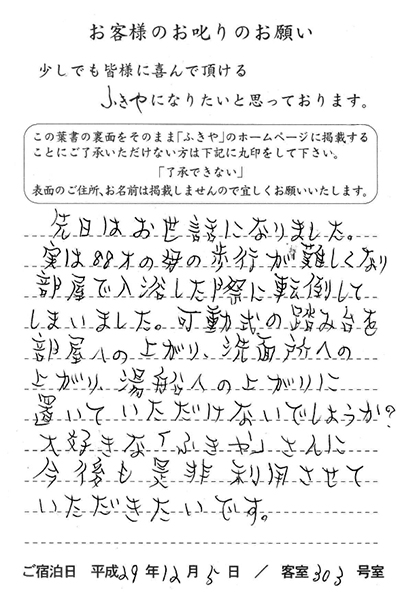 お客様のお叱りのお願い
少しでも皆様に喜んで頂ける
ふきやになりたいと思っております。
この葉書の裏面をそのまま「ふきや」のホームページに掲載する
ことにご了承いただけない方は下記に丸印をして下さい。
「了承できない」
表面のご住所、お名前は掲載しませんので宜しくお願いいたします。
先日はお世話になりました。
実は88才の母の歩行が難しくなり
部屋で入浴した際に転倒して
しまいました。可動式の踏み台を
部屋への上がり、洗面所への
上がり、湯船への上がりに
置いていただけないでしょうか?
大好きな「ふきや」さんに
今後も是非利用させて
いただきたいです。
ご宿泊日 平成29年12月5日 / 客室303号室